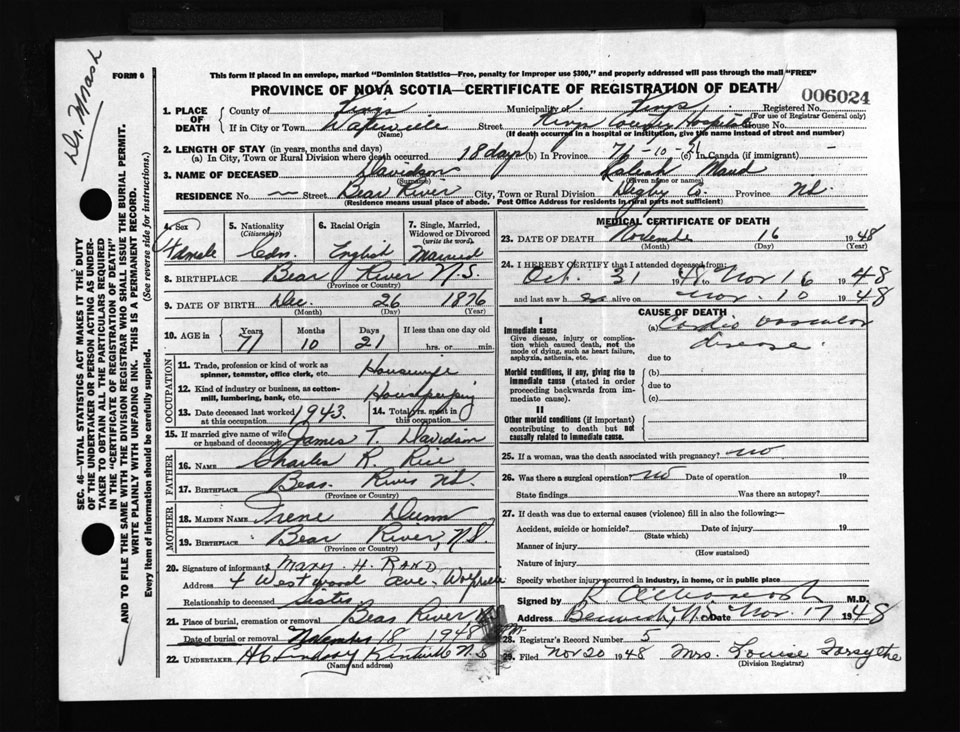 Dr. Marsh
FORM 6
This form if placed in an envelope, marked "Dominion Statistics—Free, penalty for improper use $300," and properly addressed will pass through the mail "FREE"
PROVINCE OF NOVA SCOTIA—CERTIFICATE OF REGISTRATION OF DEATH
006024
SEC. 46—VITAL STATISTICS ACT MAKES IT THE DUTY
OF THE UNDERTAKER OR PERSON ACTING AS UNDER-
TAKER TO OBTAIN ALL THE PARTICULARS REQUIRED
IN THE "CERTIFICATE OF REGISTRATION OF DEATH"
AND TO FILE THE SAME WITH THE DIVISION REGISTRAR WHO SHALL ISSUE THE BURIAL PERMIT.
WRITE PLAINLY WITH UNFADING INK. THIS IS A PERMANENT RECORD.
Every item of information should be carefully supplied. (See reverse side for instructions.)
1. PLACE OF DEATH County of Kings Municipality of Kings Registered No.
(For use of Registrar General only)
If in City or Town Waterville Street Kings County Hospital House No.
(Name) (If death occurred in a hospital or institution, give its name instead of street and number)
2. LENGTH OF STAY (in years, months and days)
(a) In City, Town or Rural Division where death occurred 18 days (b) In Province 71-10-21 (c) In Canada (if immigrant) -
3. NAME OF DECEASED Davidson Maud
(Surname) (Given name or names)
RESIDENCE No. — Street Bear River City, Town or Rural Division Digby Co. Province N.S.
(Residence means usual place of abode. Post Office Address for residents in rural parts not sufficient)
4. Sex
Female
5. Nationality
(Citizenship)
Cdn.
6. Racial Origin
English
7. Single, Married, Widowed or Divorced
(write the word)
Married
8. BIRTHPLACE Bear River N.S.
(Province or Country)
9. DATE OF BIRTH Dec. 26 1876
(Month) (Day) (Year)
10. AGE in Years Months Days If less than one day old
71 10 21 hrs. or min.
OCCUPATION
11. Trade, profession or kind of work as
spinner, teamster, office clerk, etc. Housewife
12. Kind of industry or business, as cotton-
mill, lumbering, bank, etc. Housekeeping
13. Date deceased last worked at this occupation 1943
14. Total yrs. spent in this occupation
15. If married give name of wife or husband of deceased James T. Davidson
FATHER
16. NAME Charles R. Rice
17. BIRTHPLACE Bear River N.S.
(Province or Country)
MOTHER
18. MAIDEN NAME Irene Dunn
19. BIRTHPLACE Bear River, N.S.
(Province or Country)
20. Signature of informant Mary H. Rand
Address 4 Westwood Ave. Wolfville
Relationship to deceased Sister
21. Place of burial, cremation or removal Bear River, N.S.
Date of burial or removal November 18 1948
22. UNDERTAKER Lindsay Kentville N.S.
(Name and address)
MEDICAL CERTIFICATE OF DEATH
23. DATE OF DEATH November 16 1948
(Month) (Day) (Year)
24. I HEREBY CERTIFY that I attended deceased from:
Oct. 31 1948 to Nov 16 1948
and last saw h er alive on Nov. 10 1948
CAUSE OF DEATH
I
Immediate cause
Give disease, injury or complica-
tion which caused death, not the
mode of dying, such as heart failure,
asphyxia, asthenia, etc.
(a) Cardio vascular
disease.
due to
Morbid conditions, if any, giving rise to
immediate cause (stated in order
proceeding backwards from im-
mediate cause).
(b)
due to
(c)
II
Other morbid conditions (if important)
contributing to death but not
causally related to immediate cause.
25. If a woman, was the death associated with pregnancy? no
26. Was there a surgical operation? no Date of operation 19
State findings Was there an autopsy?
27. If death was due to external causes (violence) fill in also the following:—
Accident, suicide or homicide? Date of injury 19
(State which)
Manner of injury
(How sustained)
Nature of injury
Specify whether injury occurred in industry, in home, or in public place
Signed by M.D.
Address Berwick, N.S. Date Nov. 17 1948
28. Registrar's Record Number 5
29. Filed Nov 20 1948 Mrs. Louise Forsythe
(Division Registrar)